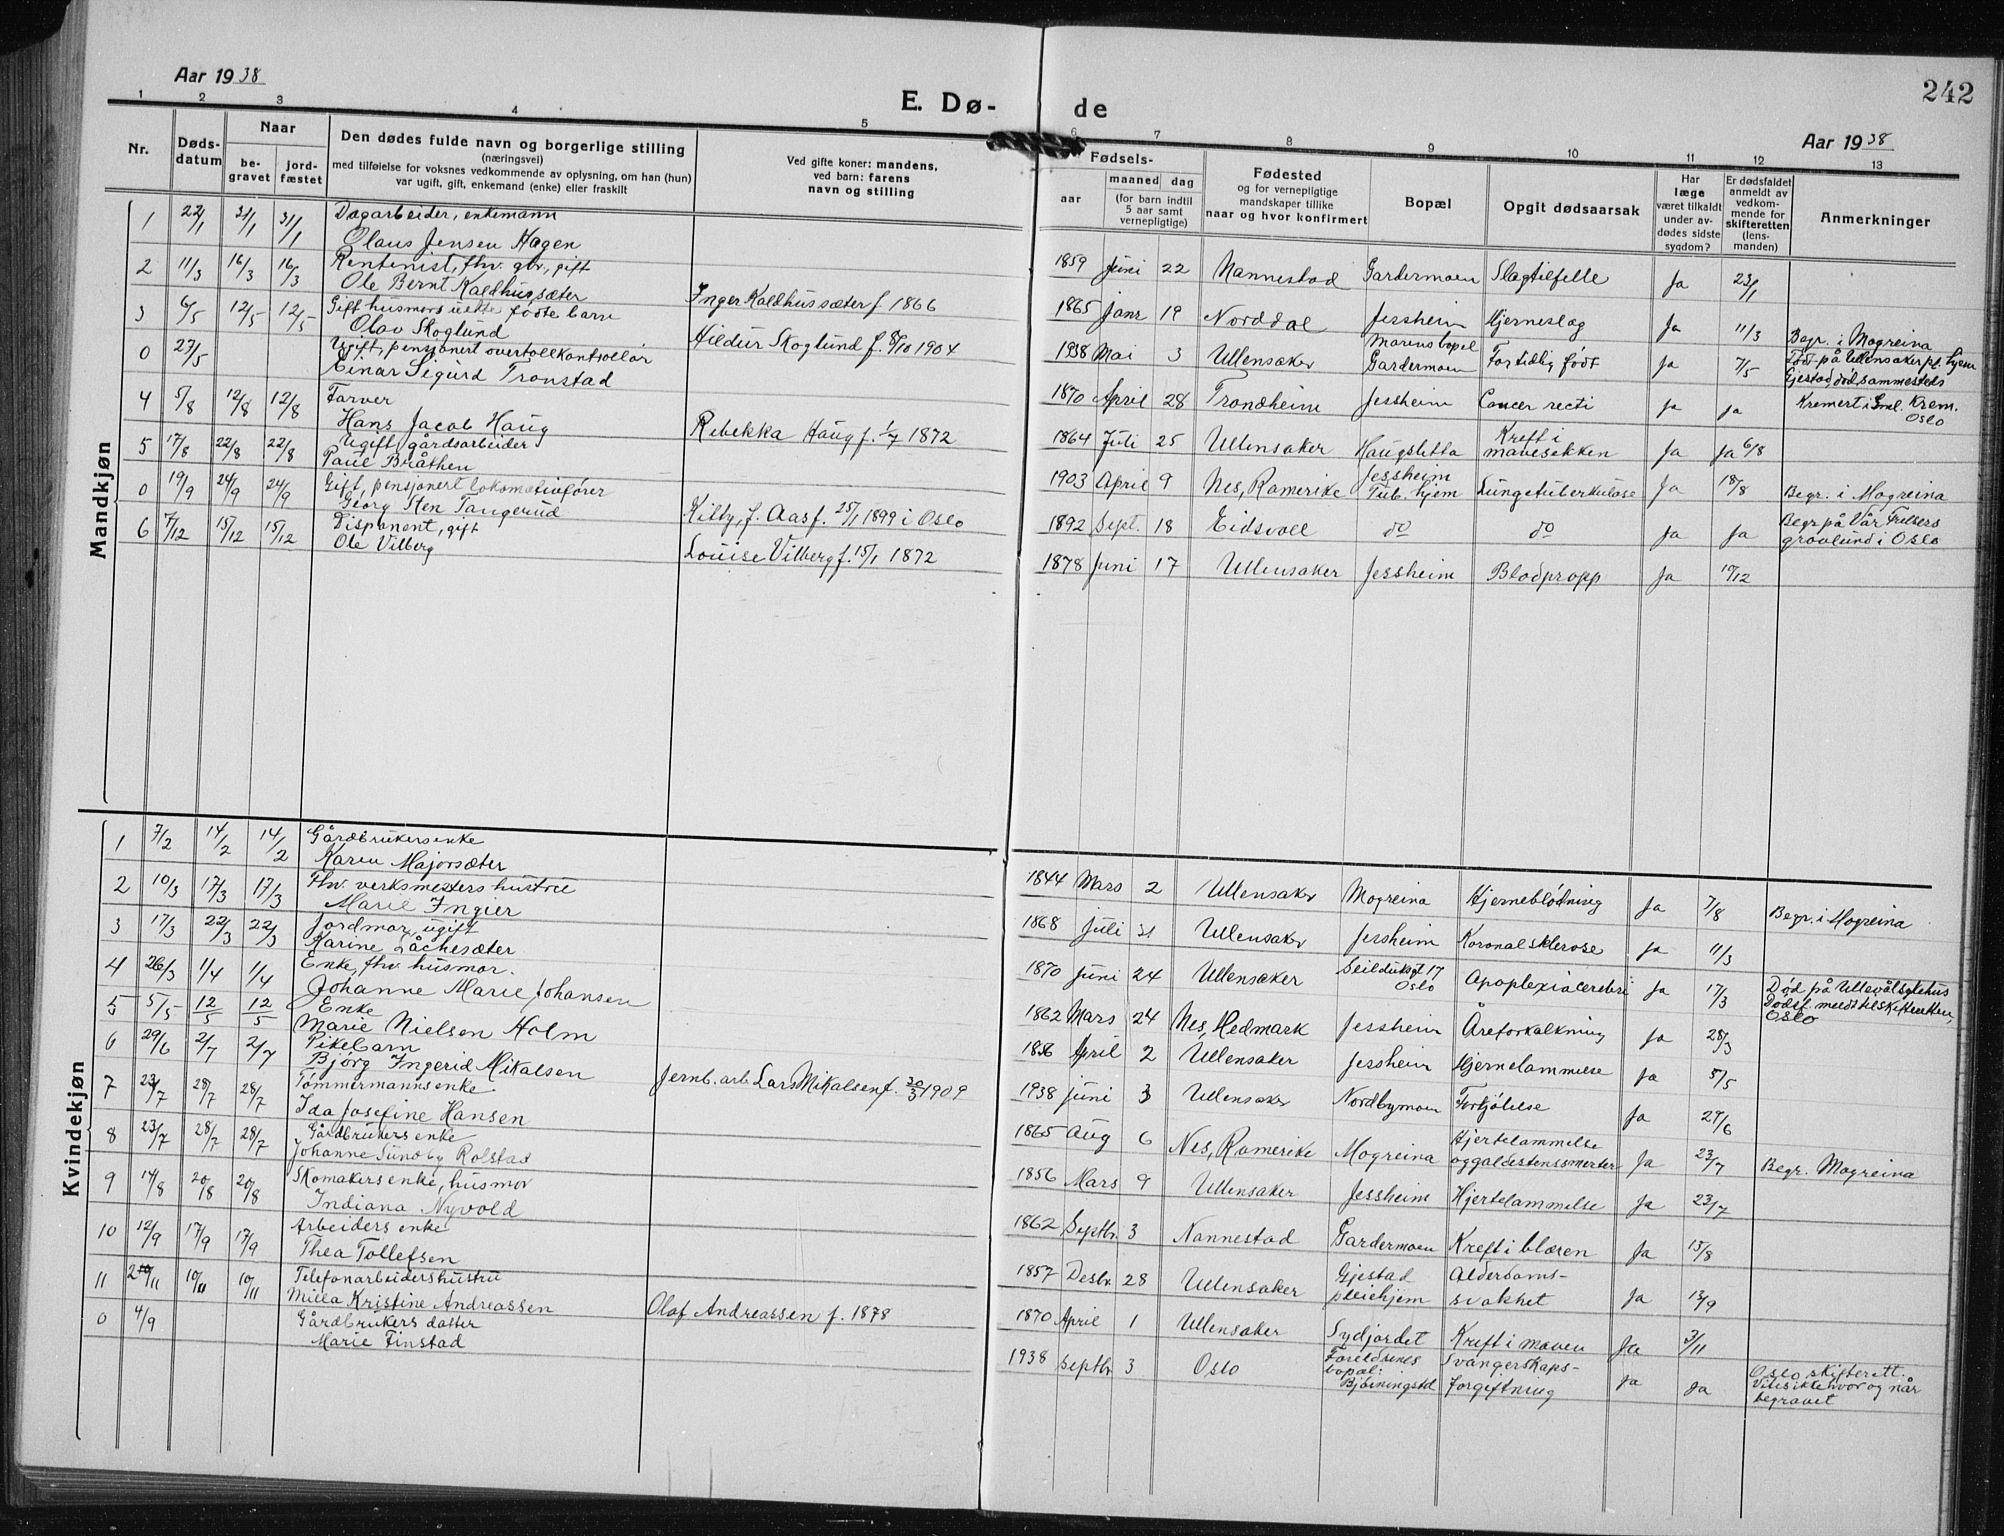 242
Aar 1938
E. Dø- de
Aar 1938
1 2 3 4 5 6 7 8 9 10 11 12 13
Nr.
Døds-
datum
Naar
be-
gravet
jord-
fæstet
Den dødes fulde navn og borgerlige stilling
(næringsvei)
med tilføielse for voksnes vedkommende av oplysning, om han (hun)
var ugift, gift, enkemand (enke) eller fraskilt
Ved gifte koner: mandens,
ved barn: farens
navn og stilling
Fødsels-
aar
maaned dag
(for barn indtil
5 aar samt
vernepligtige)
Fødested
og for vernepligtige
mandskaper tillike
naar og hvor konfirmert
Bopæl
Opgit dødsaarsak
Har
læge
været tilkaldt
under av-
dødes sidste
sygdom?
Er dødsfaldet
anmeldt av
vedkom-
mende for
skifteretten
(lens-
manden)
Anmerkninger
Mandkjøn
1 22/1 31/1 31/1 Dagarbeider, enkemann
Olaus Jensen Hagen
1859 Juni 22 Nannestad Gardermoen Slagtilfelle Ja 23/1
2 11/3 16/3 16/3 Rentenist, fhv. gbr., gift
Ole Bernt Kaldhussæter Inger Kaldhussæter f. 1866
1865 Janr 19 Norddal Jessheim Hjerneslag Ja 11/3
3 6/5 12/5 12/5 Gift husmors uekte fødte barn
Olav Skoglund Hildur Skoglund f. 8/10 1904
1938 Mai 3 Ullensaker Morens bopel
Gardermoen For tidlig født Ja 7/5 Begr. i Mogreina
0 27/5 Ugift, pensjonert overtollkontrollør
Einar Sigurd Tronstad
1870 April 28 Trondheim Jessheim Cancer recti Ja Ja Død på Ullensaker pl. hjem
Gjestad død sammesteds
Kremert i Krem.
Oslo
4 5/8 12/8 12/8 Farver
Hans Jacob Haug Rebekka Haug f. 1/7 1872
1864 Juli 25 Ullensaker Haugslitta Kreft i
mavesekken Ja Ja 6/8
5 17/8 22/8 22/8 Ugift, gårdsarbeider
Paul Bråthen
1903 April 9 Nes, Romerike Jessheim
Tub. hjem Lungetuberkulose Ja 18/8 Begr. i Mogreina
0 19/9 24/9 24/9 Gift, pensjonert lokomotivfører
Georg Sten Tangerud Kitty, f. Aas f. 25/1 1899 i Oslo
1892 Sept. 18 Eidsvoll do do Ja Ja Begr på Vår Frelsers
gravlund i Oslo
6 7/12 15/12 15/12 Disponent, gift
Ole Vilberg Louise Vilberg f. 15/1 1872
1878 Juni 17 Ullensaker Jessheim Blodpropp Ja 10/12
Kvindekjøn
1 7/2 14/2 14/2 Gårdbrukersenke
Karen Majorsæter
1844 Mars 2 Ullensaker Mogreina Hjerneblødning Ja 7/8 Begr. i Mogreina
2 10/3 17/3 17/3 Fhv. verksmesters hustru
Marie Ingier
1868 Juli 31 Ullensaker Jessheim Koronalsklerose Ja 11/3
3 17/3 22/3 22/3 Jordmor, ugift
Karine Låchesæter
1870 Juni 24 Ullensaker Seilduksgt 17
Oslo Apoplexia cerebri Ja 17/3 Død på Ullevål sykehus
Dødsf. meldt til skifteretten,
Oslo
4 26/3 1/4 1/4 Enke, fhv. husmor.
Johanne Marie Johansen
1862 Mars 24 Nes, Hedmark Jessheim Åreforkalkning Ja 28/3
5 5/5 12/5 12/5 Enke
Marie Nielsen Holm
1856 April 2 Ullensaker Jessheim Hjernelammelse Ja 5/5
6 29/6 2/7 2/7 Pikebarn
Bjørg Ingerid Mikalsen Jernb. arb. Lars Mikalsen f. 30/3 1909
1938 Juni 3 Ullensaker Nordbymoen Forkjølelse Ja 27/6
7 23/7 28/7 28/7 Tømmermannsenke
Ida Josefine Hansen
1865 Aug 6 Nes, Romerike Mogreina Hjertelammelse
og galdestenssmerter Ja 23/7 Begr. Mogreina
8 23/7 28/7 28/7 Gårdbrukers enke
Johanne Sundby Rolstad
1856 Mars 9 Ullensaker Jessheim Hjertelammelse Ja 23/7
9 14/8 20/8 20/8 Skomakers enke, husmor
Indiana Nyvold
1862 Septbr. 3 Nannestad Gardermoen Kreft i blæren Ja 15/8
10 12/9 17/9 17/9 Arbeiders enke
Thea Tollefsen
1857 Desbr. 28 Ullensaker Gjestad
pleiehjem Alderdoms-
svakhet Ja 13/9
11 2/11 10/11 10/11 Telefonarbeidershustru
Milla Kristine Andreassen Olaf Andreassen f. 1878
1870 April 1 Ullensaker Sydjordet Kreft i maven Ja 3/11
0 4/9 Gårdbrukers datter
Marie Finstad
1938 Septbr. 3 Oslo Foreldrenes
bopæl: Svangerskaps-
forgiftning Ja Ja Oslo skifterett.
Vites ikke hvor og når
begravet